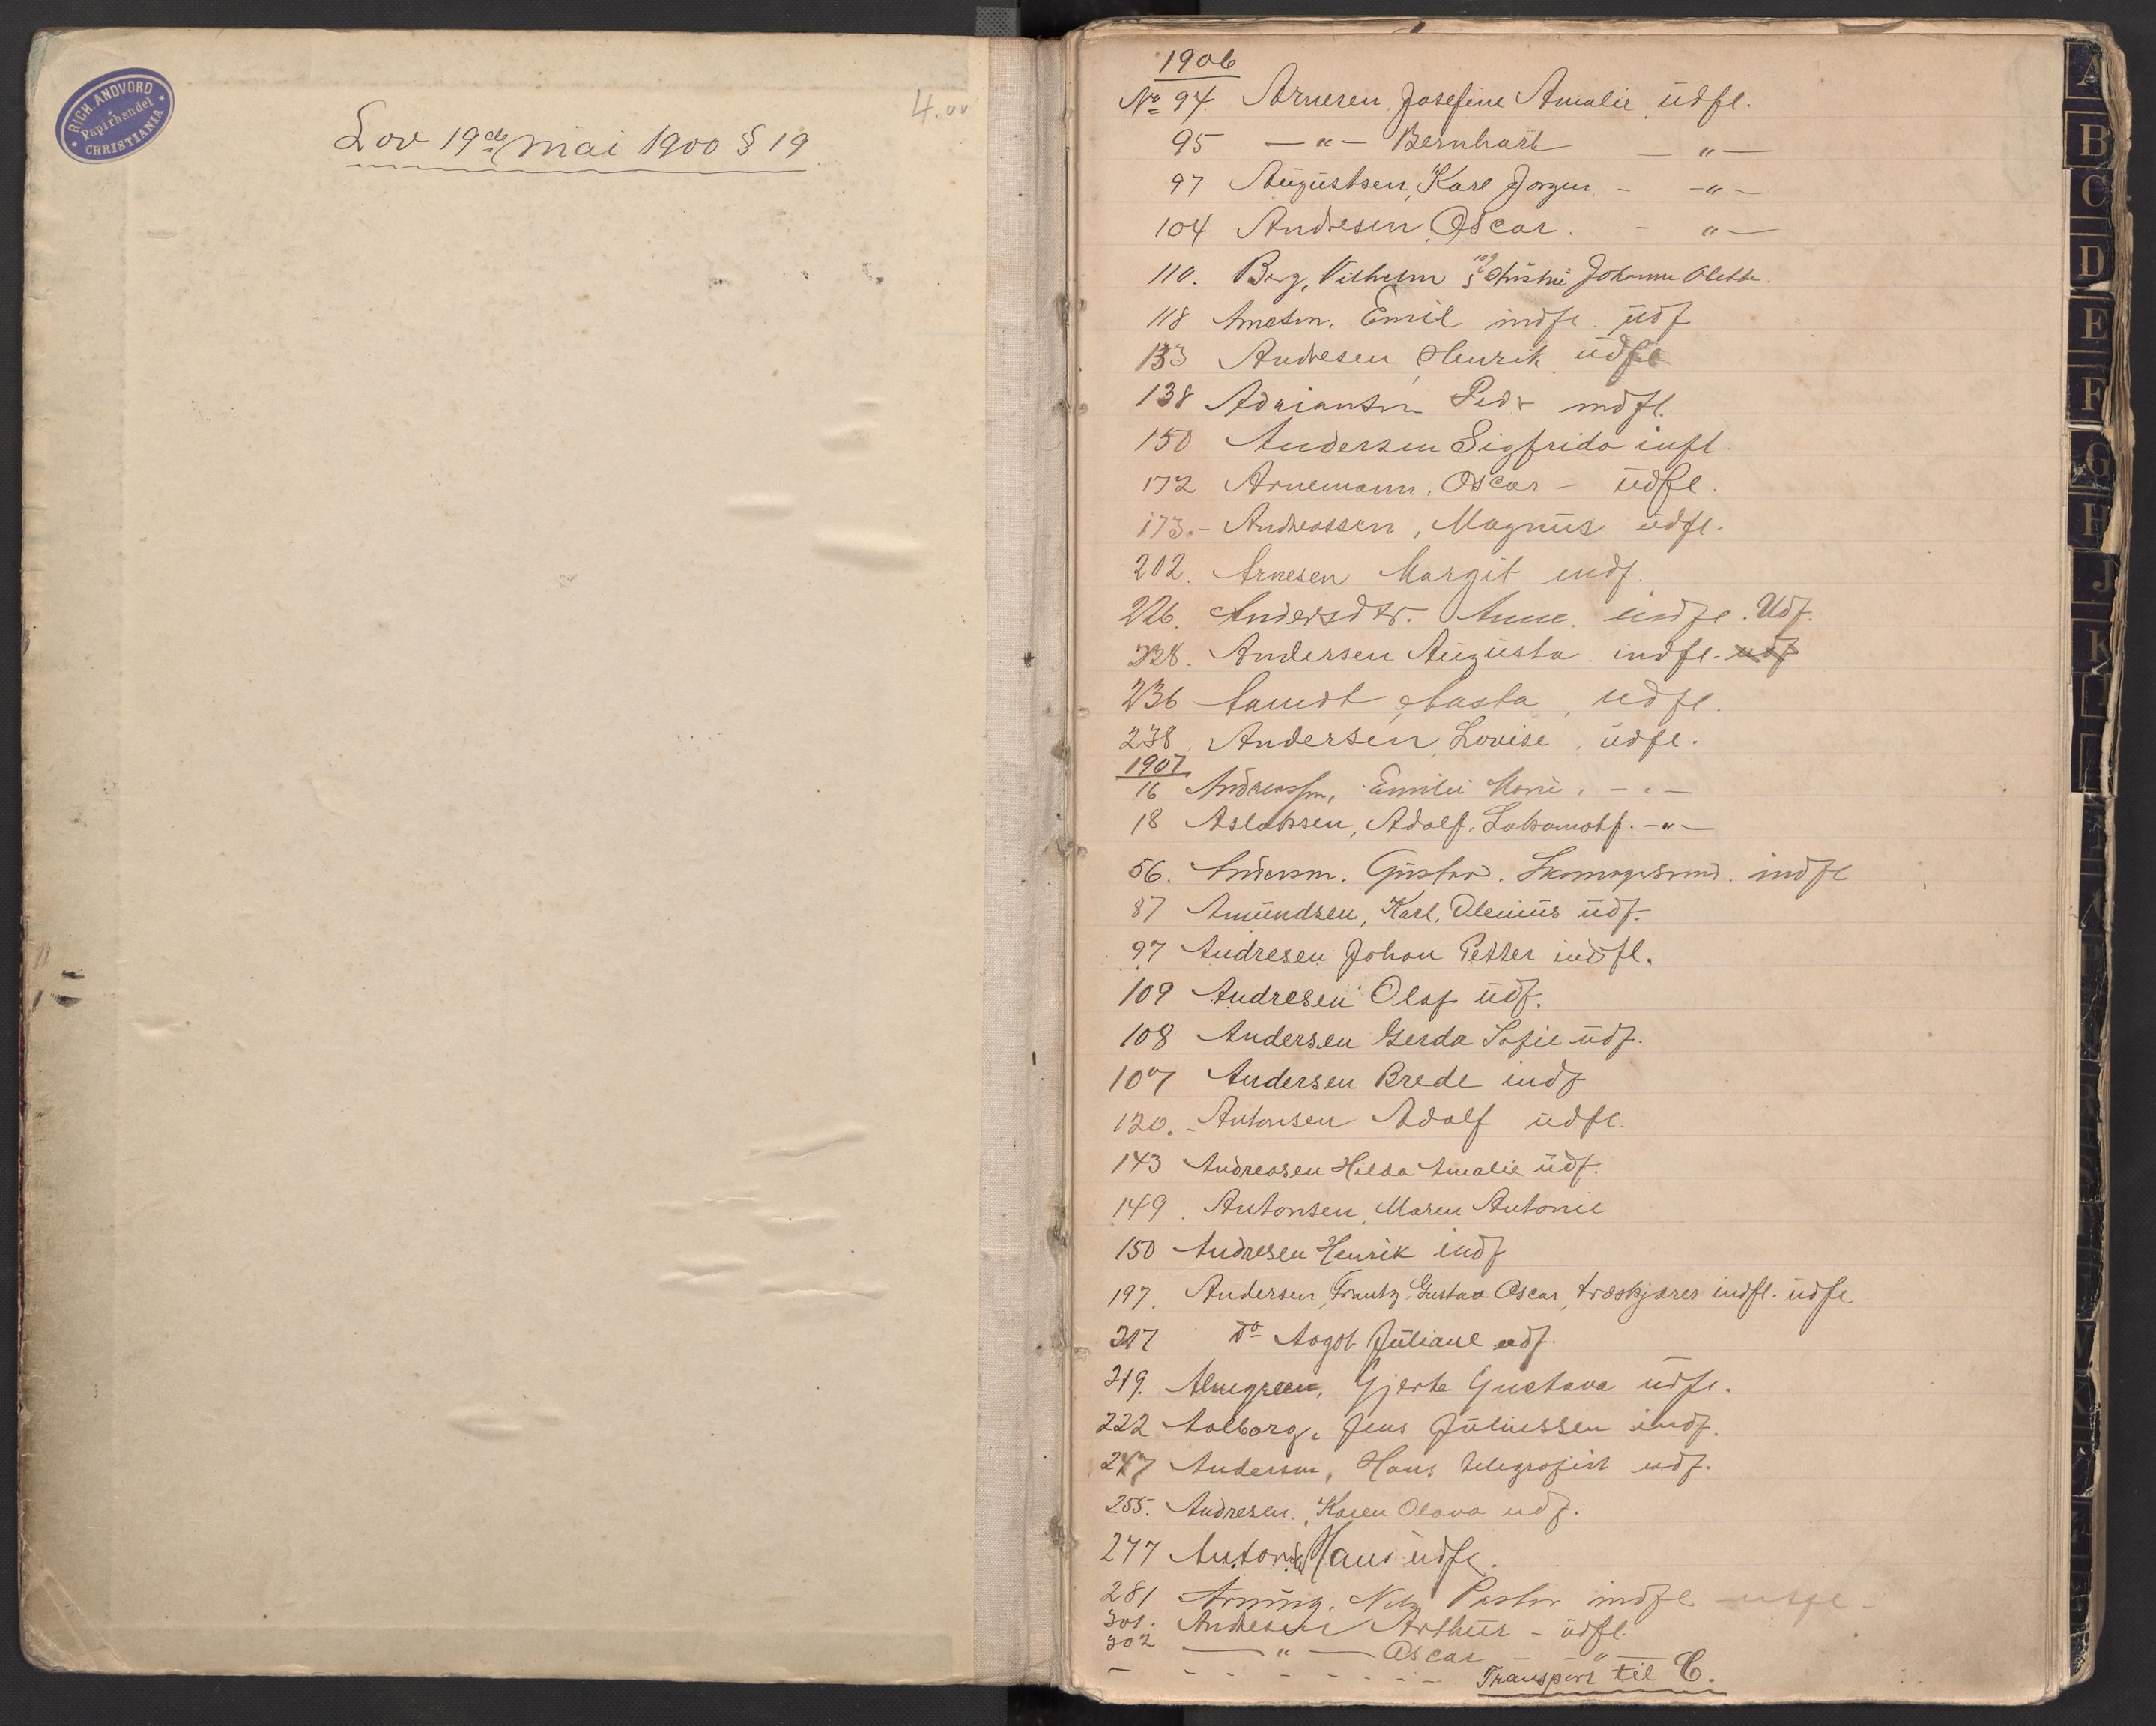 RICH. ANDVORD
Papirhandel
CHRISTIANIA
4.00
Lov 19de mai 1900 § 19
1906
No 94. Arnesen, Josefine Amalie, üdfl.
95 — " — Bernhard — " —
97 Aügüstsen, Karl Jørgen - - " -
104 Andresen, Oscar. - " —
110. Berg, Vilhelm § 109 Johanne Olette.
118 Emil indfl. üdf
133 Andresen, Henrik, üdfl
138 Adriansen Peder indfl.
150 Andersen Sigfrida infl.
172 Arnemann, Oscar - üdfl.
173.- Andreassen, Magnüs üdfl.
202. Arnesen Margit indf.
226. Andersdtr. Anne. indfl. Udf.
228. Andersen Aügüsta. indfl. udf
236 Aasta, udfl.
238, Andersen, Lovise, üdfl.
1907
16 Andreassen, Emilie Marie, - " -
18 Aslaksen, Adolf, Lokomotf. - " -
56. Andersen. Güstav. indfl
87 Amündsen, Karl, Oleniüs üdf.
97 Andresen Johan Petter indfl.
109 Andresen Olaf üdf.
108 Andersen Gerda Sofie üdf.
107 Andersen Brede indf
120. - Antonsen Adolf üdfl.
143 Andreasen Hilda Amalie üdf.
149. Antonsen, Maren Antonie
150 Andresen Henrik indf
197. Andersen, Frantz Gustav Oscar, træskjærer indfl. üdfl
217 Do Aagot Jüliane udf.
219. Almgreen, Gjerte Gustava üdfl.
222 Aalborg, Jens Júliussen indf.
247 Andersen, Hans telegrafist udf.
255. Andresen, Karen Olava udf.
277 Antonsen Hans üdfl.
281 Arning, Pastor indfl udfl.
301. Andresen Arthür - üdfl.
302 — " — Oscar - " —
Transport til C.
A
B
C
D
E
F
G
H
J
K